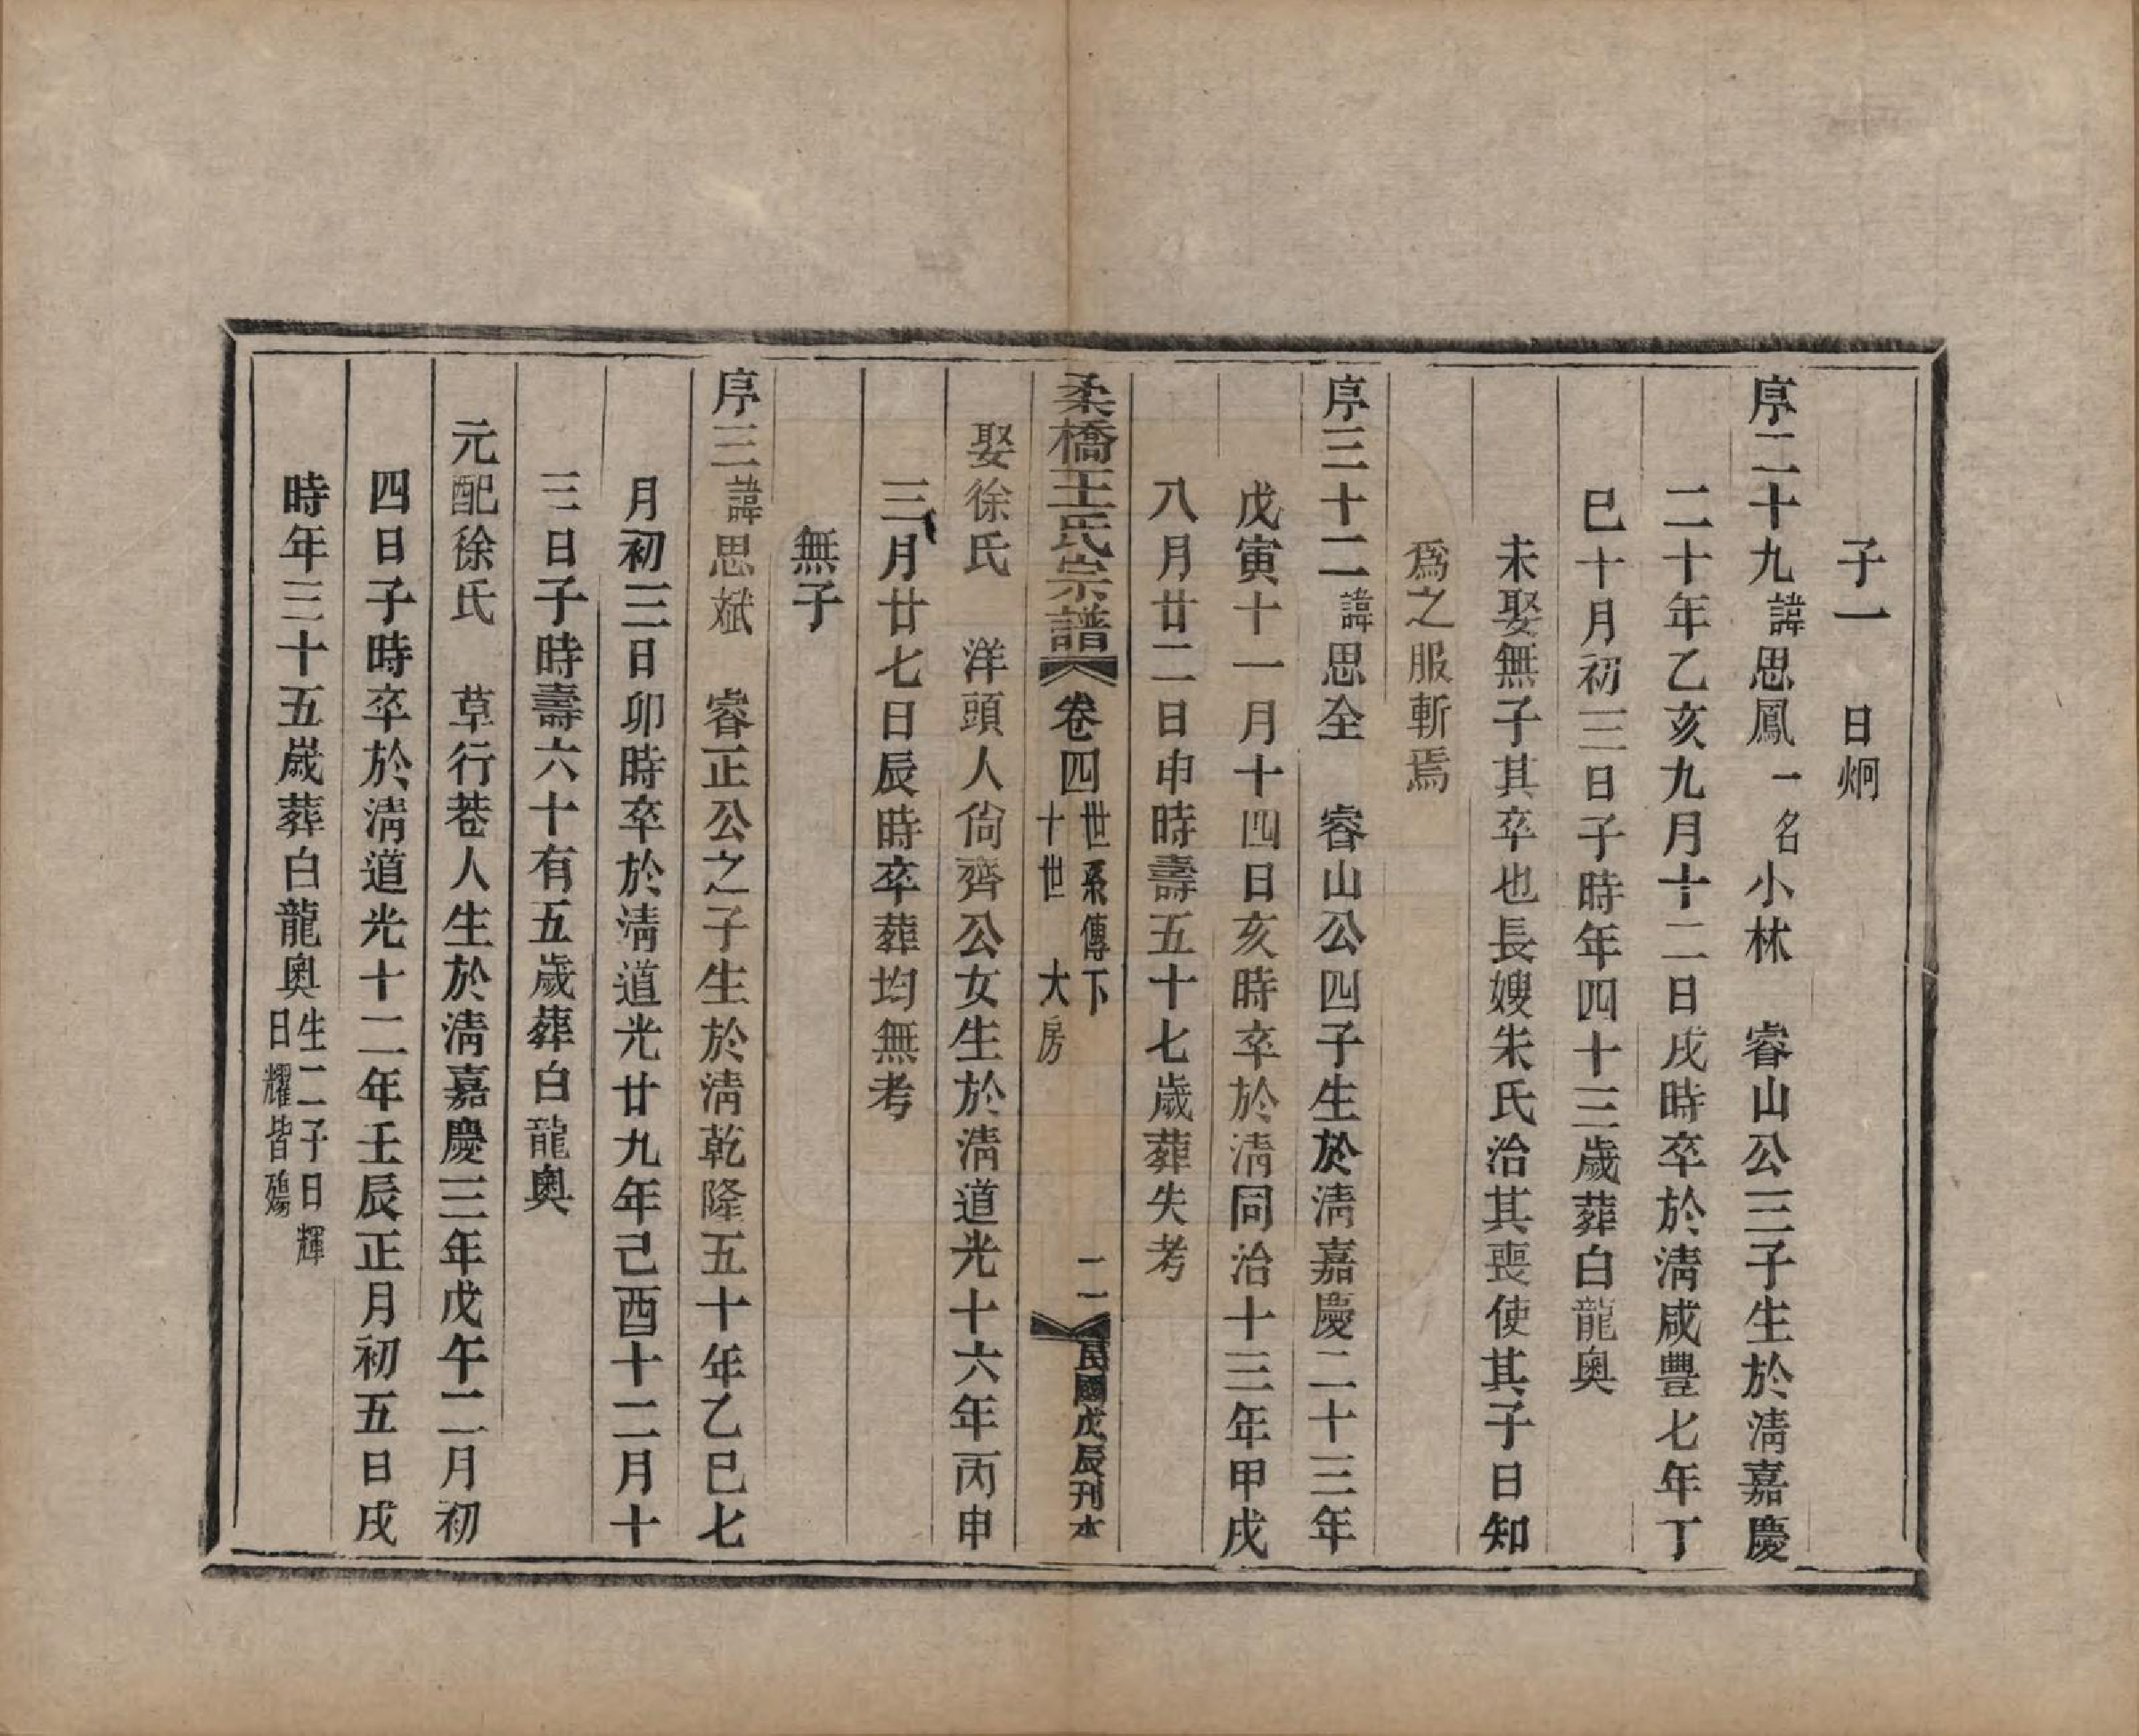 子一　日炯
序二十九諱思鳳一名小林　睿山公三子生於淸嘉慶
二十年乙亥九月十二日戌時卒於淸咸豐七年丁
巳十月初三日子時年四十三歲葬白龍奧
未娶無子其卒也長嫂朱氏治其喪使其子日知
爲之服斬焉
序三十二諱思全　睿山公四子生於淸嘉慶二十三年
戊寅十一月十四日亥時卒於淸同治十三年甲戌
八月廿二日申時壽五十七歲葬失考
柔橋王氏宗譜　卷四　世系傳下　十世　大房　二一　民國戊辰刊本
娶徐氏　洋頭人尙齊公女生於淸道光十六年丙申
三月廿七日辰時卒葬均無考
無子
序三諱思斌　睿正公之子生於淸乾隆五十年乙巳七
月初三日卯時卒於淸道光廿九年己酉十二月十
三日子時壽六十有五歲葬白龍奧
元配徐氏　草行巷人生於淸嘉慶三年戊午二月初
四日子時卒於淸道光十二年壬辰正月初五日戌
時年三十五歲葬白龍奧生二子日輝日耀皆殤